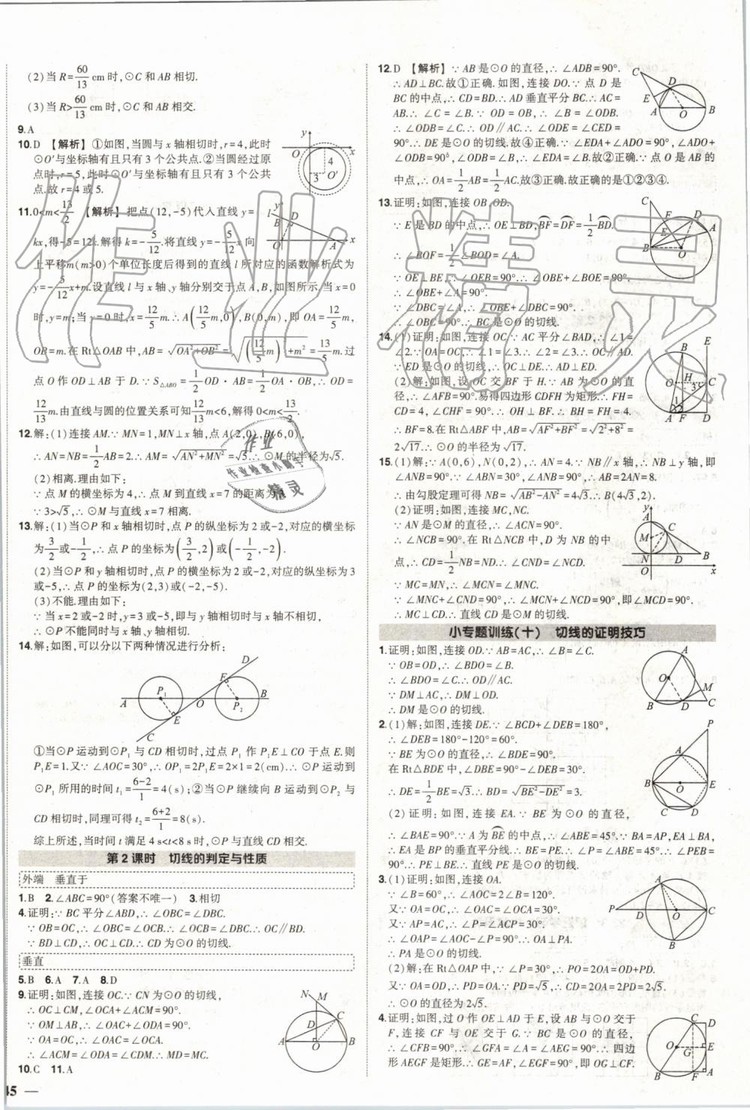 (2)当R=60/13 cm时,⊙C和AB相切.
(3)当R>60/13 cm时,⊙C和AB相交.
9.A
10.D 【解析】①如图,当圆与x轴相切时,r=4,此时
⊙O′与坐标轴有且只有3个公共点.②当圆经过原
点时,r=5,此时⊙O′与坐标轴有且只有3个公共
点.故r=4或5.
11.0<m<13/2 【解析】把点(12,-5)代入直线y=
kx,得-5=12k.解得k=-5/12.将直线y=-5/12x向
上平移m(m>0)个单位长度后得到的直线l所对应的函数解析式为
y=-5/12x+m.设直线l与x轴、y轴分别交于点A,B,如图所示.当x=0
时,y=m;当y=0时,x=12/5m.∴A(12/5m,0),B(0,m),即OA=12/5m,
OB=m.在Rt△OAB中,AB=√(OA²+OB²)=√((12/5m)²+m²)=13/5m.过
点O作OD⊥AB于D.∵S△ABO=1/2OD·AB=1/2OA·OB,∴OD=
12/13m.由直线与圆的位置关系可知12/13m<6,解得0<m<13/2.
12.解:(1)连接AM.∵MN=1,MN⊥x轴,点A(2,0),B(6,0),
∴AN=NB=1/2AB=2.∴AM=√(AN²+MN²)=√5.∴⊙M的半径为√5.
(2)相离.理由如下:
∵点M的横坐标为4,∴点M到直线x=7的距离为3.
∵3>√5,∴⊙M与直线x=7相离.
13.解:(1)当⊙P和x轴相切时,点P的纵坐标为2或-2,对应的横坐标
为3/2或-1/2.∴点P的坐标为(3/2,2)或(-1/2,-2).
(2)当⊙P和y轴相切时,点P的横坐标为2或-2,对应的纵坐标为3
或-5,∴点P的坐标为(2,3)或(-2,-5).
(3)不能.理由如下:
∵当x=2或-2时,y=3或-5,即与y轴相切时与x轴不相切,
∴⊙P不能同时与x轴和y轴相切.
14.解:如图,可以分以下两种情况进行分析:
①当⊙P运动到⊙P₁与CD相切时,过点P₁作P₁E⊥CO于点E.则
P₁E=1.又∵∠AOC=30°,∴OP₁=2P₁E=2×1=2(cm).∴⊙P运动到
⊙P₁所用的时间t₁=(6-2)/1=4(s);②当⊙P继续向B运动到⊙P₂与
CD相切时,同理可得t₂=(6+2)/1=8(s).
综上所述,当时间t满足4 s<t<8 s时,⊙P与直线CD相交.
第2课时 切线的判定与性质
外端 垂直于
1.B 2.∠ABC=90°(答案不唯一) 3.相切
4.证明:∵BC平分∠ABD,∴∠OBC=∠DBC.
∵OB=OC,∴∠OBC=∠OCB.∴∠OCB=∠DBC.∴OC∥BD.
∵BD⊥CD,∴OC⊥CD.∴CD为⊙O的切线.
垂直
5.B 6.A 7.A 8.D
9.证明:如图,连接OC.∵CN为⊙O的切线,
∴OC⊥CM,∠OCA+∠ACM=90°.
∵OM⊥AB,∴∠OAC+∠ODA=90°.
∵OA=OC,∴∠OAC=∠OCA.
∴∠ACM=∠ODA=∠CDM.∴MD=MC.
10.C 11.A
12.D 【解析】∵AB是⊙O的直径,∴∠ADB=90°.
∴AD⊥BC.故①正确.如图,连接DO.∵点D是
BC的中点,∴CD=BD.∴AD垂直平分BC.∴AC=
AB.∴∠C=∠B.∵OD=OB,∴∠B=∠ODB.
∴∠ODB=∠C.∴OD∥AC.∴∠ODE=∠CED=
90°.∴DE是⊙O的切线.故④正确.∵∠EDA+∠ADO=90°,∠ADO+
∠ODB=90°,∴∠EDA=∠ODB=∠B.故②正确.∵点O是AB的中
点,∴OA=1/2AB.∴OA=1/2AC.故③正确.故正确的是①②③④.
13.证明:如图,连接OB,OD.
∵E是BD的中点,∴OE⊥BD,BF=DF=1/2BD.
∴∠BOF=1/2∠BOD=∠A.
∵OE⊥BE,∴∠OBE+∠BOE=90°.
∴∠OBE+∠A=90°.
∵∠DBC=∠A,∴∠OBE+∠DBC=90°.
∴∠OBC=90°.∴BC是⊙O的切线.
14.(1)证明:如图,连接OC.∵AC平分∠BAD,∴∠1=
∠2.∵OA=OC,∴∠1=∠3.∴∠2=∠3.∴OC∥AD.
∵ED是⊙O的切线,∴OC⊥DE.∴AD⊥ED.
(2)解:如图,设OC交BF于H.∵AB为⊙O的直
径,∴∠AFB=90°.易得四边形CDFH为矩形.∴FH=
CD=4,∠CHF=90°.∴OH⊥BF.∴BH=FH=4.
∴BF=8.在Rt△ABF中,AB=√(AF²+BF²)=√(2²+8²)=
2√17.∴⊙O的半径为√17.
15.(1)解:∵A(0,6),N(0,2),∴AN=4.∵BN∥x轴,
∴∠ANB=90°.∵∠ABN=30°,∴AB=2AN=8.
∴由勾股定理可得NB=√(AB²-AN²)=4√3.∴B(4√3,2).
(2)证明:如图,连接MC,NC.
∵AN是⊙M的直径,∴∠ACN=90°.
∴∠NCB=90°.在Rt△NCB中,D为NB的中
点,∴CD=1/2NB=ND.∴∠CND=∠NCD.
∵MC=MN,∴∠MCN=∠MNC.
∵∠MNC+∠CND=90°,∴∠MCN+∠NCD=90°.
∴MC⊥CD.∴直线CD是⊙M的切线.
小专题训练(十) 切线的证明技巧
1.证明:如图,连接OD.∵AB=AC,∴∠B=∠C.
∵OB=OD,∴∠BDO=∠B.
∴∠BDO=∠C.∴OD∥AC.
∵DM⊥AC,∴DM⊥OD.
∴DM是⊙O的切线.
2.(1)解:如图,连接DE.∵∠BCD+∠DEB=180°,
∴∠DEB=180°-120°=60°.
∵BE为⊙O的直径,∴∠BDE=90°.
在Rt△BDE中,∠DBE=90°-60°=30°,
∴DE=1/2BE=√3.∴BD=√(BE²-DE²)=3.
(2)证明:如图,连接EA.∵BE为⊙O的直径,
∴∠BAE=90°.∵A为BE的中点,∴∠ABE=45°.∵BA=AP,EA⊥BA,
∴EA是BP的垂直平分线.∴EB=EP.∴∠P=∠ABE=45°.
∴∠BEP=90°.∴PE是⊙O的切线.
3.(1)证明:如图,连接OA.
∵∠B=60°,∴∠AOC=2∠B=120°.
又∵OA=OC,∴∠OAC=∠OCA=30°.
又∵AP=AC,∴∠P=∠ACP=30°.
∴∠OAP=∠AOC-∠P=90°.∴OA⊥PA.
∴PA是⊙O的切线.
(2)解:在Rt△OAP中,∵∠P=30°,∴PO=2OA=OD+PD.
又∵OA=OD,∴PD=OA.∵PD=√5,∴CD=2OA=2PD=2√5.
∴⊙O的直径为2√5.
4.证明:如图,过O作OE⊥AD于E,设AB与⊙O交于
F,连接CF与OE交于G.∵BC是⊙O的直径,
∴∠CFB=90°.∴∠GFA=∠A=∠AEG=90°.∴四边
形AEGF是矩形.∴GE=AF,EG∥AF.∵∠D=∠A=